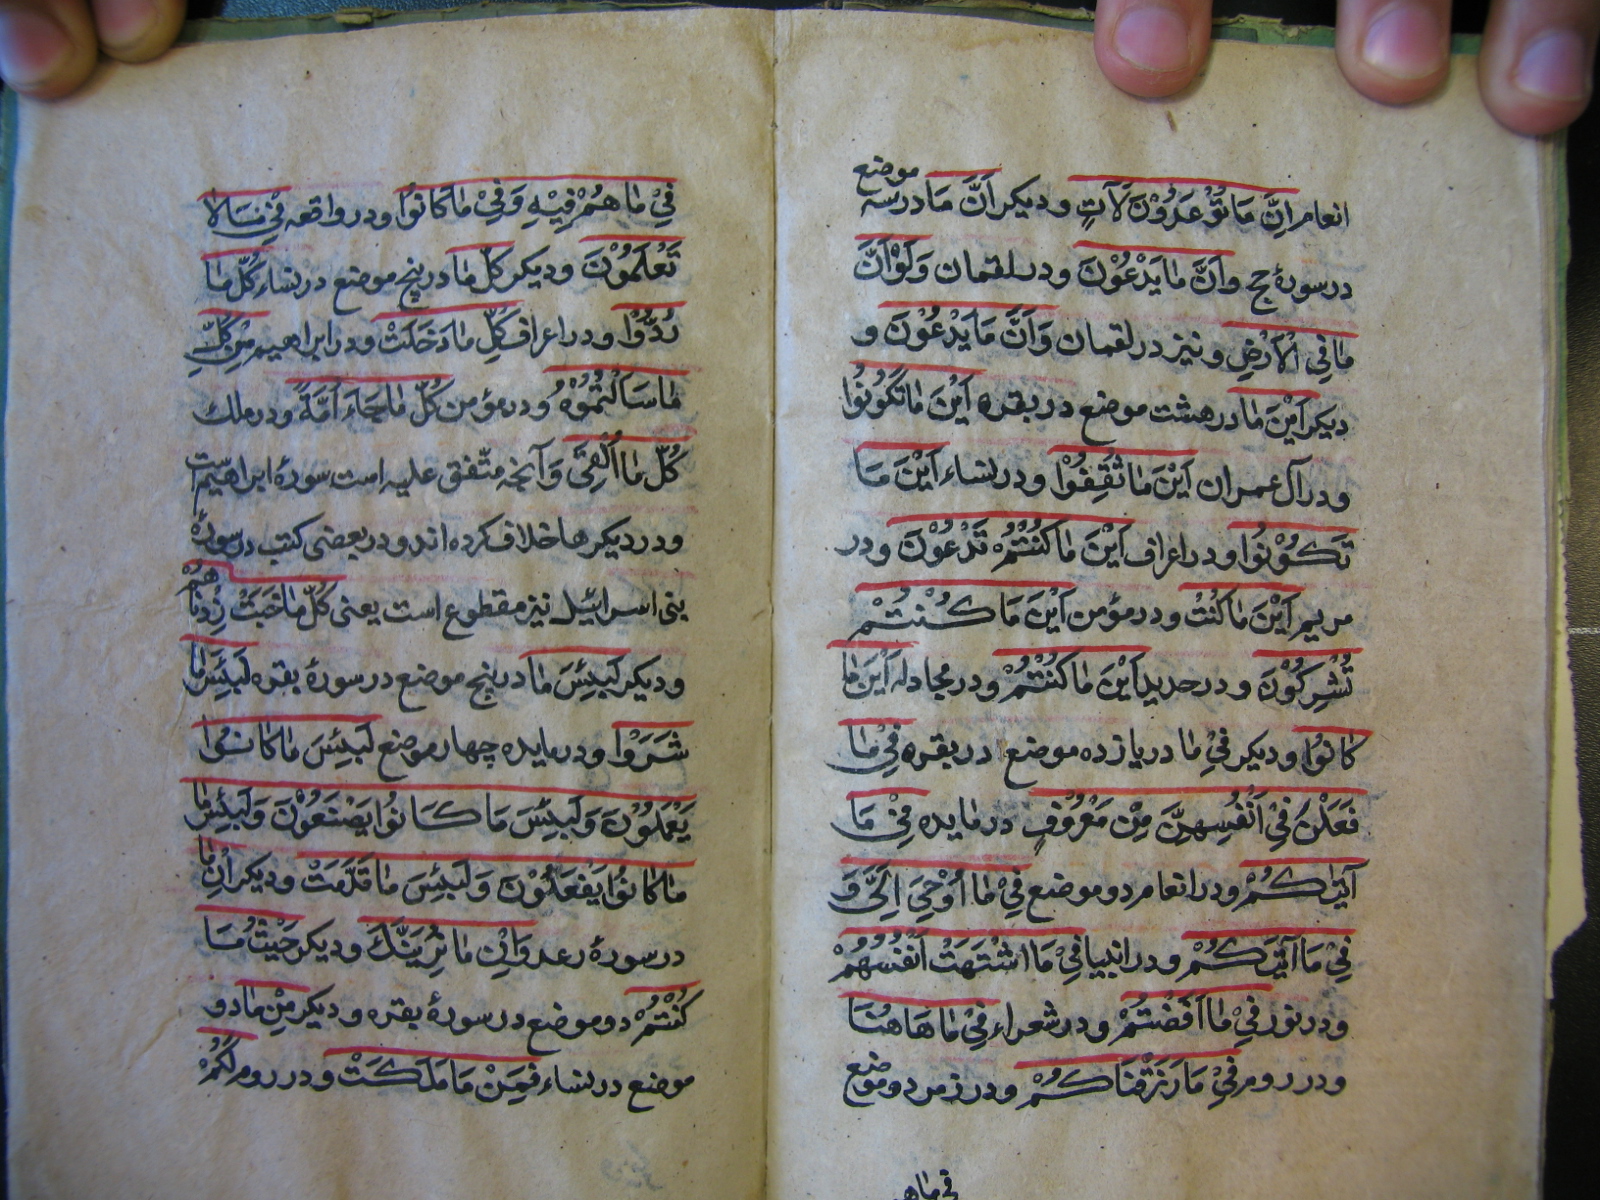 انعام اِنَّ مَا تُوْعَدُوْنَ لَآتٍ و دیکر اَنَّ مَا در سه موضع
در سورهٔ حج وَاَنَّ مَا یَدْعُوْنَ و در لقمان وَلَوْ اَنَّ
مَا فِی الْاَرْضِ و نیز در لقمان وَاَنَّ مَا یَدْعُوْنَ و
دیکر اَیْنَ مَا در هشت موضع در بقره اَیْنَ مَا تَکُوْنُوْا
و در آل عمران اَیْنَ مَا ثُقِفُوْا و در نساء اَیْنَ مَا
تَکُوْنُوْا و در اعراف اَیْنَ مَا کُنْتُمْ تَدْعُوْنَ و در
مریم اَیْنَ مَا کُنْتُ و در مؤمن اَیْنَ مَا کُنْتُمْ
تُشْرِکُوْنَ و در حدید اَیْنَ مَا کُنْتُمْ و در مجادله اَیْنَ مَا
کَانُوْا و دیکر فِیْ مَا در یازده موضع در بقره فِیْ مَا
فَعَلْنَ فِیْ اَنْفُسِهِنَّ مِنْ مَعْرُوْفٍ در مایده فِیْ مَا
آتٰیکُمْ و در انعام دو موضع فِیْ مَا اُوْحِیَ اِلَیَّ وَ
فِیْ مَا آتٰیکُمْ و در انبیا فِیْ مَا اشْتَهَتْ اَنْفُسُهُمْ
و در نور فِیْ مَا اَفَضْتُمْ و در شعراء فِیْ مَا هَاهُنَا
و در روم فِیْ مَا رَزَقْنَاکُمْ و در زمر دو موضع
فی ما هم
فِیْ مَا هُمْ فِیْهِ وَفِیْ مَا کَانُوْا و در واقعه فِیْ مَا لَا
تَعْلَمُوْنَ و دیکر کُلِّ مَا در پنج موضع در نساء کُلَّ مَا
رُدُّوْا و در اعراف کُلِّ مَا دَخَلَتْ و در ابراهیم مِنْ کُلِّ
مَا سَاَلْتُمُوْهُ و در مؤمن کُلَّ مَا جَاءَ اُمَّةً و در ملک
کُلَّ مَا اُلْقِیَ وَ آنچه متّفق علیه است سورهٔ ابراهیم است
و در دیکرها خلاف کرده اند و در بعضی کتب در سورهٔ
بنی اسرائیل نیز مقطوع است یعنی کُلَّ مَا خَبَتْ زِدْنَاهُمْ
و دیکر لَبِئْسَ مَا در پنج موضع در سورهٔ بقره لَبِئْسَ مَا
شَرَوْا و در مایده چهار موضع لَبِئْسَ مَا کَانُوْا
یَعْمَلُوْنَ وَلَبِئْسَ مَا کَانُوْا یَصْنَعُوْنَ وَلَبِئْسَ مَا
مَا کَانُوْا یَفْعَلُوْنَ وَلَبِئْسَ مَا قَدَّمَتْ و دیکر اِنْ مَا
در سورهٔ رعد وَاِنْ مَا نُرِیَنَّکَ و دیکر حَیْثُ مَا
کُنْتُمْ دو موضع در سورهٔ بقره و دیکر مِنْ مَا دو
موضع در نساء فَمِنْ مَا مَلَکَتْ و در روم لَکُمْ